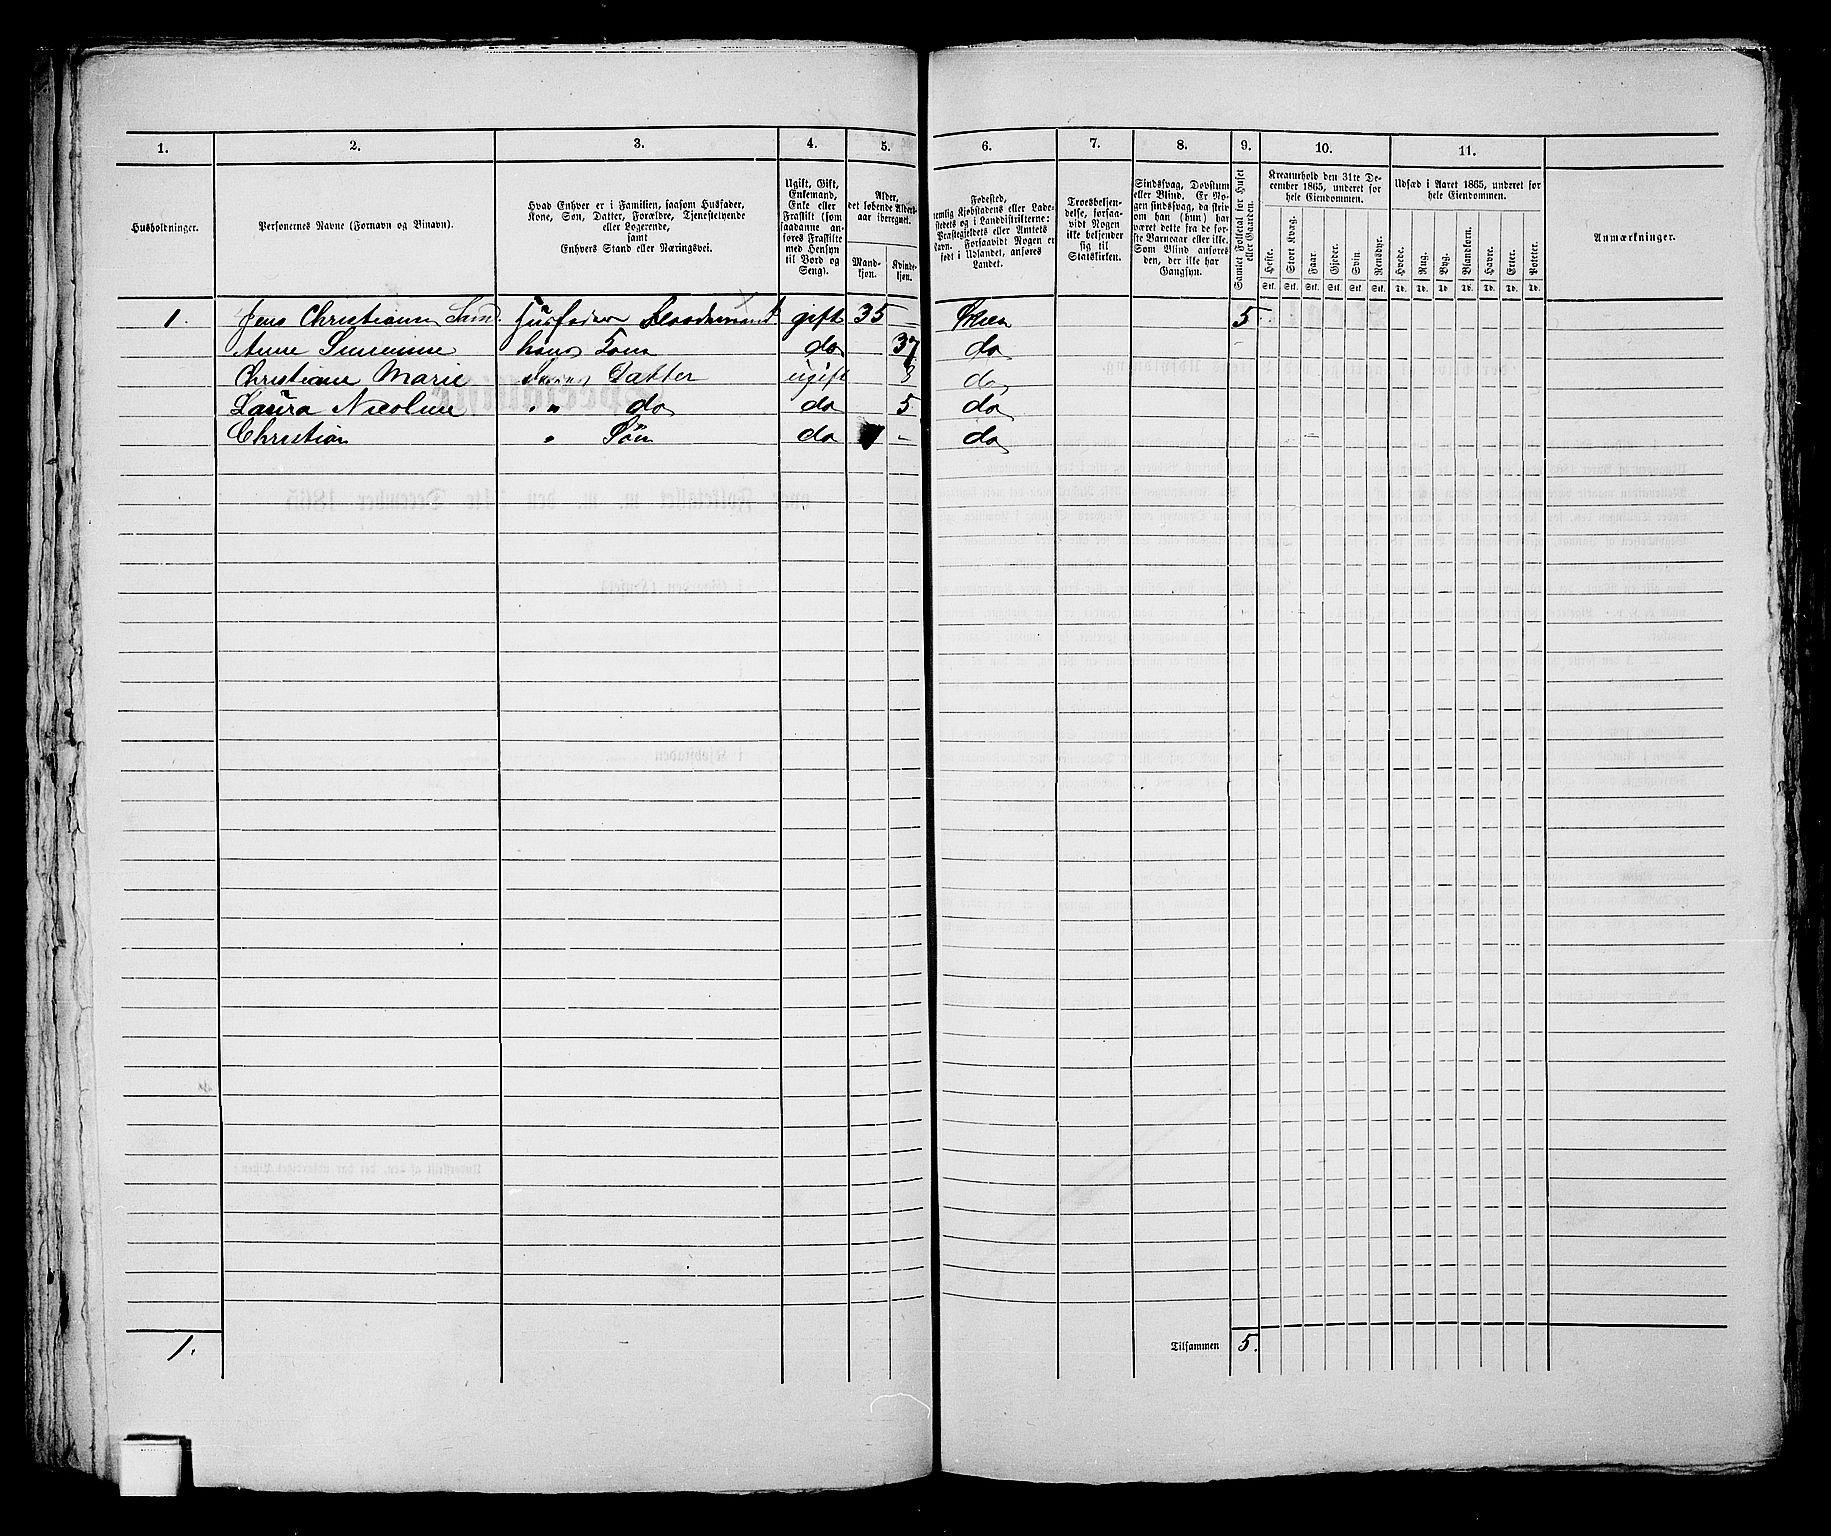 1. 2. 3. 4. 5. 6. 7. 8. 9. 10. 11.
Husholdninger.
Personernes Navne (Fornavn og Binavn).
Hvad Enhver er i Familien, saasom Husfader,
Kone, Søn, Datter, Forældre, Tjenestetyende
eller Logerende,
samt
Enhvers Stand eller Næringsvei.
Ugift, Gift,
Enkemand,
Enke eller
Fraskilt (som
saadanne an-
føres Fraskilte
med Hensyn
til Bord og
Seng).
Alder,
det løbende Alders-
aar iberegnet.
Mand-
kjøn.
Kvinde-
kjøn.
Fødested,
nemlig Kjøbstadens eller Lade-
stedets og i Landdistrikterne:
Præstegjeldets eller Amtets
Navn. Forsaavidt Nogen er
født i Udlandet, anføres
Landet.
Troesbekjen-
delse, forsaa-
vidt Nogen
ikke bekjender
sig til
Statskirken.
Sindssvag, Døvstum
eller Blind. Er No-
gen sindssvag, da skriv
om han (hun) har
været dette fra de før-
ste Barneaar eller ikke.
Som Blind anføres
den, der ikke har
Gangsyn.
Samlet Folketal for Huset
eller Gaarden.
Kreaturhold den 31te De-
cember 1865, underet for
hele Eiendommen.
Heste. Stort Kvæg. Faar. Gjeder. Svin Rensdyr.
Stk. Stk. Stk. Stk. Stk. Stk.
Udsæd i Aaret 1865, underet for
hele Eiendommen.
Hvede. Rug. Byg. Blandkorn. Havre. Erter. Poteter.
Td. Td. Td. Td. Td. Td. Td.
Anmærkninger.
1. Jens Christian Husfader gift 35 - Skien 5
Anne hans Kone do 37 do
Christiane Marie Datter ugift do
Laura Nicoline " " do do 5 do
Christian " Søn do - do
1. Tilsammen 5.